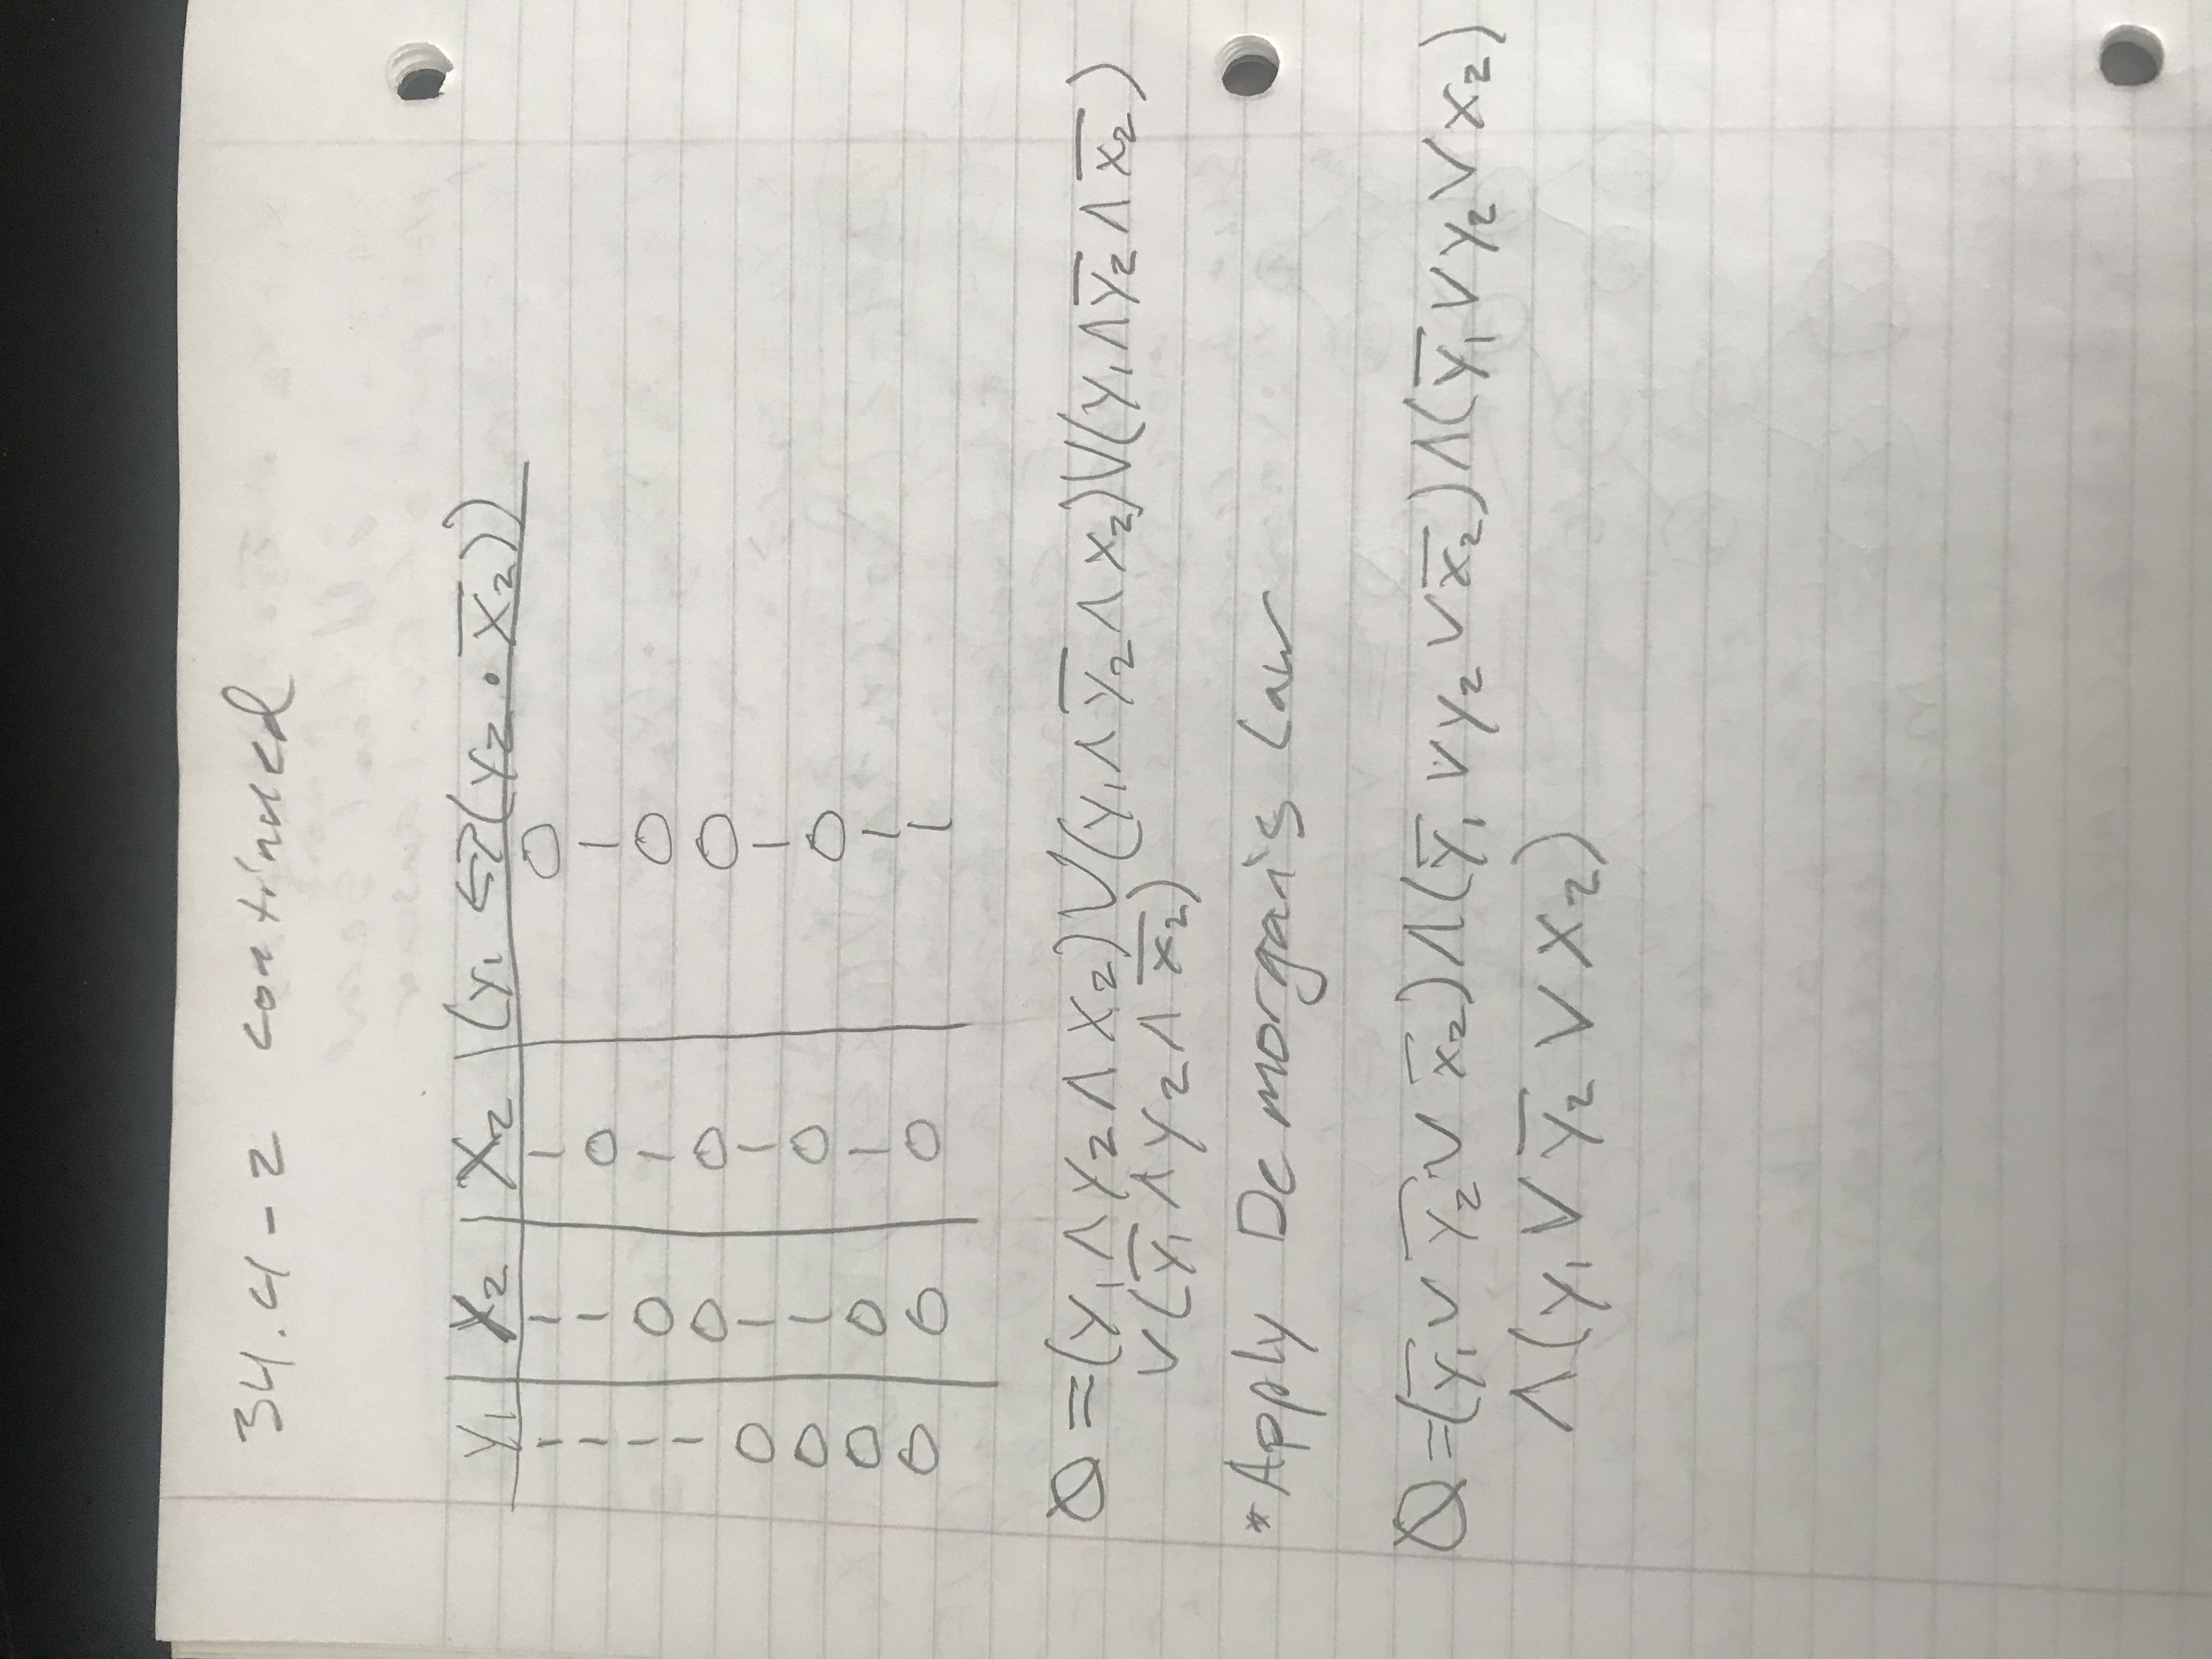 34.4-2 continued
y₁ | y₂ | x₂ | (y₁ ↔ (y₂ · x̅₂))
1 | 1 | 1 | 0
1 | 1 | 0 | 1
1 | 0 | 1 | 0
1 | 0 | 0 | 0
0 | 1 | 1 | 1
0 | 1 | 0 | 0
0 | 0 | 1 | 1
0 | 0 | 0 | 1
Ø = (y₁ ∧ y₂ ∧ x₂) ∨ (y₁ ∧ y̅₂ ∧ x₂) ∨ (y₁ ∧ y̅₂ ∧ x̅₂)
∨ (y̅₁ ∧ y₂ ∧ x̅₂)
*Apply De morgan's Law
Ø = (y̅₁ ∨ y̅₂ ∨ x̅₂) ∧ (y̅₁ ∨ y₂ ∨ x̅₂) ∧ (y̅₁ ∨ y₂ ∨ x₂)
∧ (y₁ ∨ y̅₂ ∨ x₂)